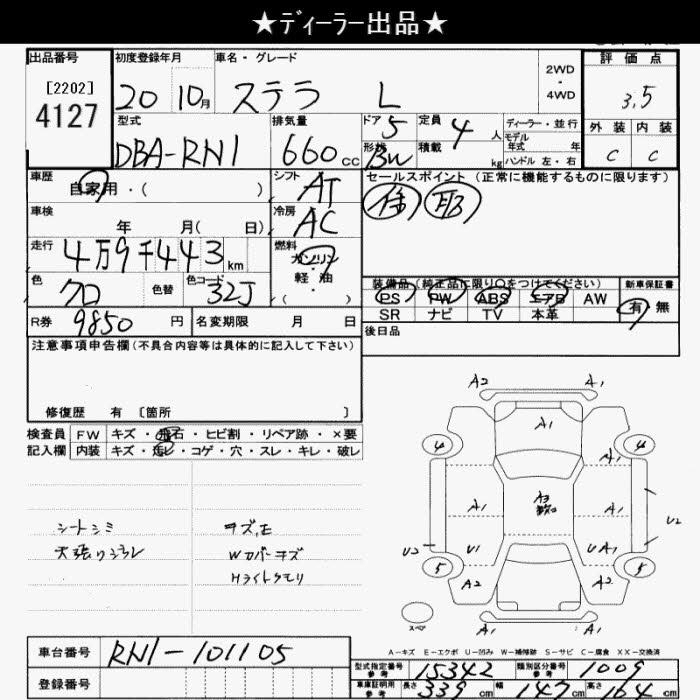 ★ディーラー出品★
出品番号 初度登録年月 車名・グレード 2WD・4WD 評価点
[2202] 4127 20 10月 ステラ L 3.5
型式 排気量 ドア 5 定員 4人 ディーラー・並行 外装 内装
DBA-RN1 660cc 形状 BW 積載 kg モデル年式 年 ハンドル 左・右 C C
車歴 自家用・( ) シフト AT セールスポイント (正常に機能するものに限ります)
車検 年 月( 日) 冷房 AC 保 取
走行 4万9千443km 燃料 ガソリン・軽油・( )
色 クロ 色替 色コード 32J 装備品 (純正品に限り○をつけてください) 新車保証書
PS PW ABS エアB AW 有 無
R券 9850円 名変期限 月 日 SR ナビ TV 本革
注意事項申告欄(不具合内容等は具体的に記入して下さい) 後日品
修復歴 有 [箇所 ]
検査員 FW キズ・飛石・ヒビ割・リペア跡・×要
記入欄 内装 キズ・汚レ・コゲ・穴・スレ・キレ・破レ
シートシミ キズ,E
天張りシミ Wカバーキズ
Hライトクモリ
A2 A1
A1
4 4
A1
A1 A3 A1
U2 U1 UA1 U2
5 5
A2 A2
スペア A1 A1
A-キズ E-エクボ U-凹み W-補修跡 S-サビ C-腐食 XX-交換済
車台番号 RN1-101105
型式指定番号 参考 15342 類別区分番号 参考 1009
登録番号 車庫証明用 参考 長さ 339cm 幅 147cm 高さ 164cm